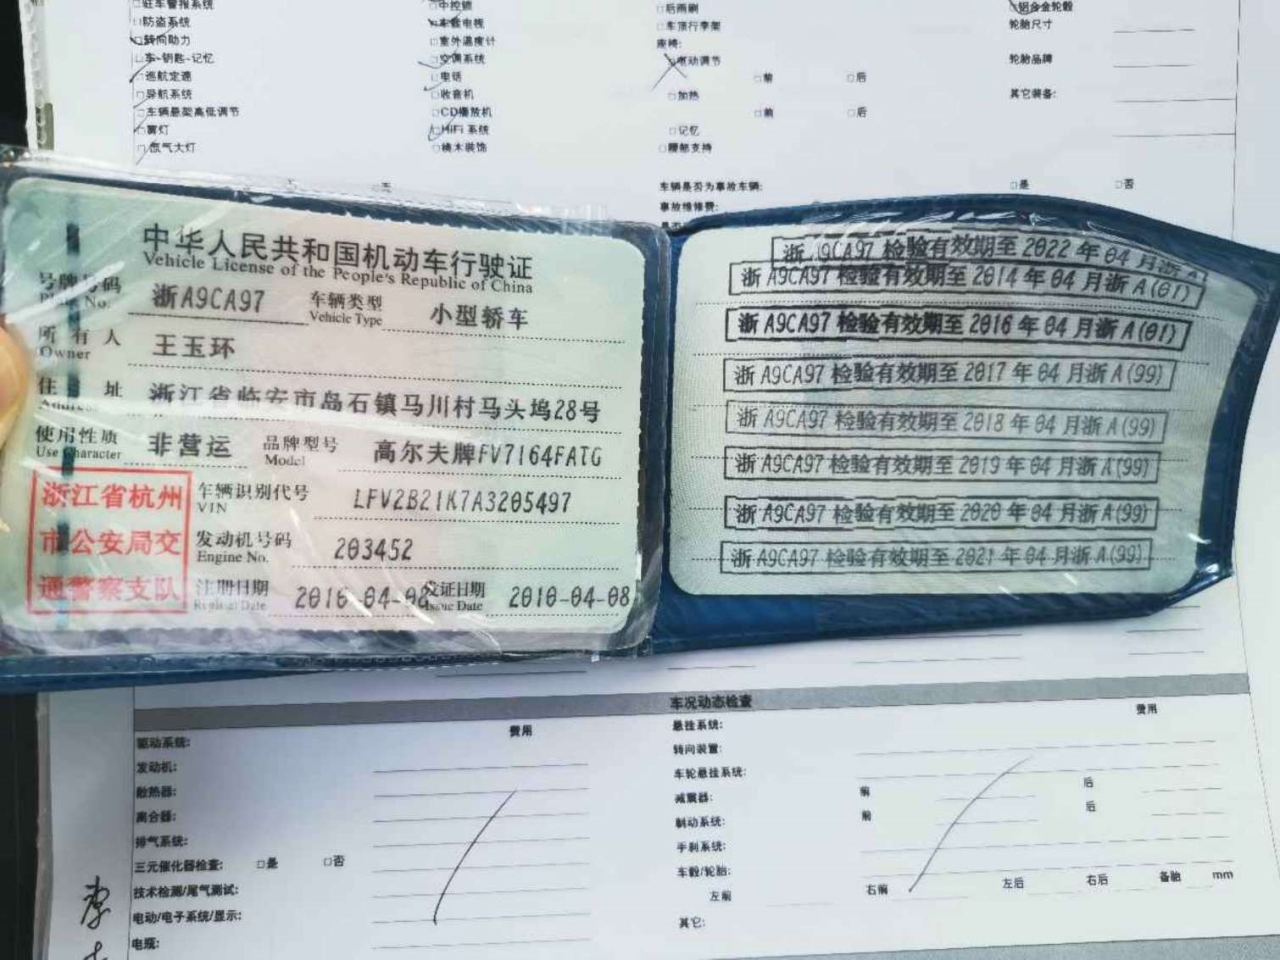 驻车警报系统
防盗系统
转向助力
车-钥匙-记忆
巡航定速
导航系统
车辆悬架高低调节
雾灯
氙气大灯
中控锁
车载电视
室外温度计
空调系统
电话
收音机
CD播放机
HiFi 系统
桃木装饰
后雨刷
车顶行李架
座椅:
电动调节
□前 □后
加热
□前 □后
□记忆
腰部支持
车辆是否为事故车辆: □是 □否
事故维修费:
铝合金轮毂
轮胎尺寸
轮胎品牌
其它装备:
中华人民共和国机动车行驶证
Vehicle License of the People's Republic of China
号牌号码 浙A9CA97 车辆类型 小型轿车
Plate No. Vehicle Type
所有人 王玉环
Owner
住址 浙江省临安市岛石镇马川村马头坞28号
Address
使用性质 非营运 品牌型号 高尔夫牌FV7164FATG
Use Character Model
浙江省杭州
市公安局交
通警察支队
车辆识别代号 LFV2B21K7A3205497
VIN
发动机号码 203452
Engine No.
注册日期 2010-04-08 发证日期 2010-04-08
Register Date Issue Date
浙A9CA97 检验有效期至 2022 年 04 月浙A
浙A9CA97 检验有效期至 2014 年 04 月浙A(01)
浙A9CA97 检验有效期至 2016 年 04 月浙A(01)
浙A9CA97 检验有效期至 2017 年 04 月浙A(99)
浙A9CA97 检验有效期至 2018 年 04 月浙A(99)
浙A9CA97 检验有效期至 2019 年 04 月浙A(99)
浙A9CA97 检验有效期至 2020 年 04 月浙A(99)
浙A9CA97 检验有效期至 2021 年 04 月浙A(99)
费用
驱动系统:
发动机:
散热器:
离合器:
排气系统:
三元催化器检查: □是 □否
技术检测/尾气测试:
电动/电子系统/显示:
电瓶:
车况动态检查
费用
悬挂系统:
转向装置:
车轮悬挂系统:
减震器: 前 后
制动系统: 前 后
手刹系统:
车毂/轮胎:
左前 右前 左后 右后 备胎 mm
其它: